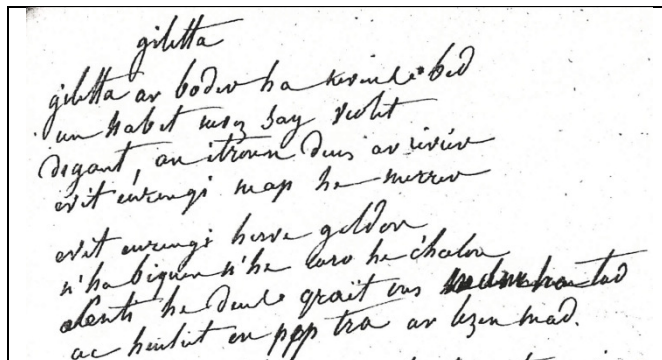 giletta
giletta ar boder ha kerindebed
un habit neuez say violet
digant, an itroun deus ar riviér
evit eurengi map he merrer
evit eurengi herve geldon
n'ha biquen n'he caro he c'halon
he deule grait eus tad
ac heuliit en pep tra ar lezen mad.